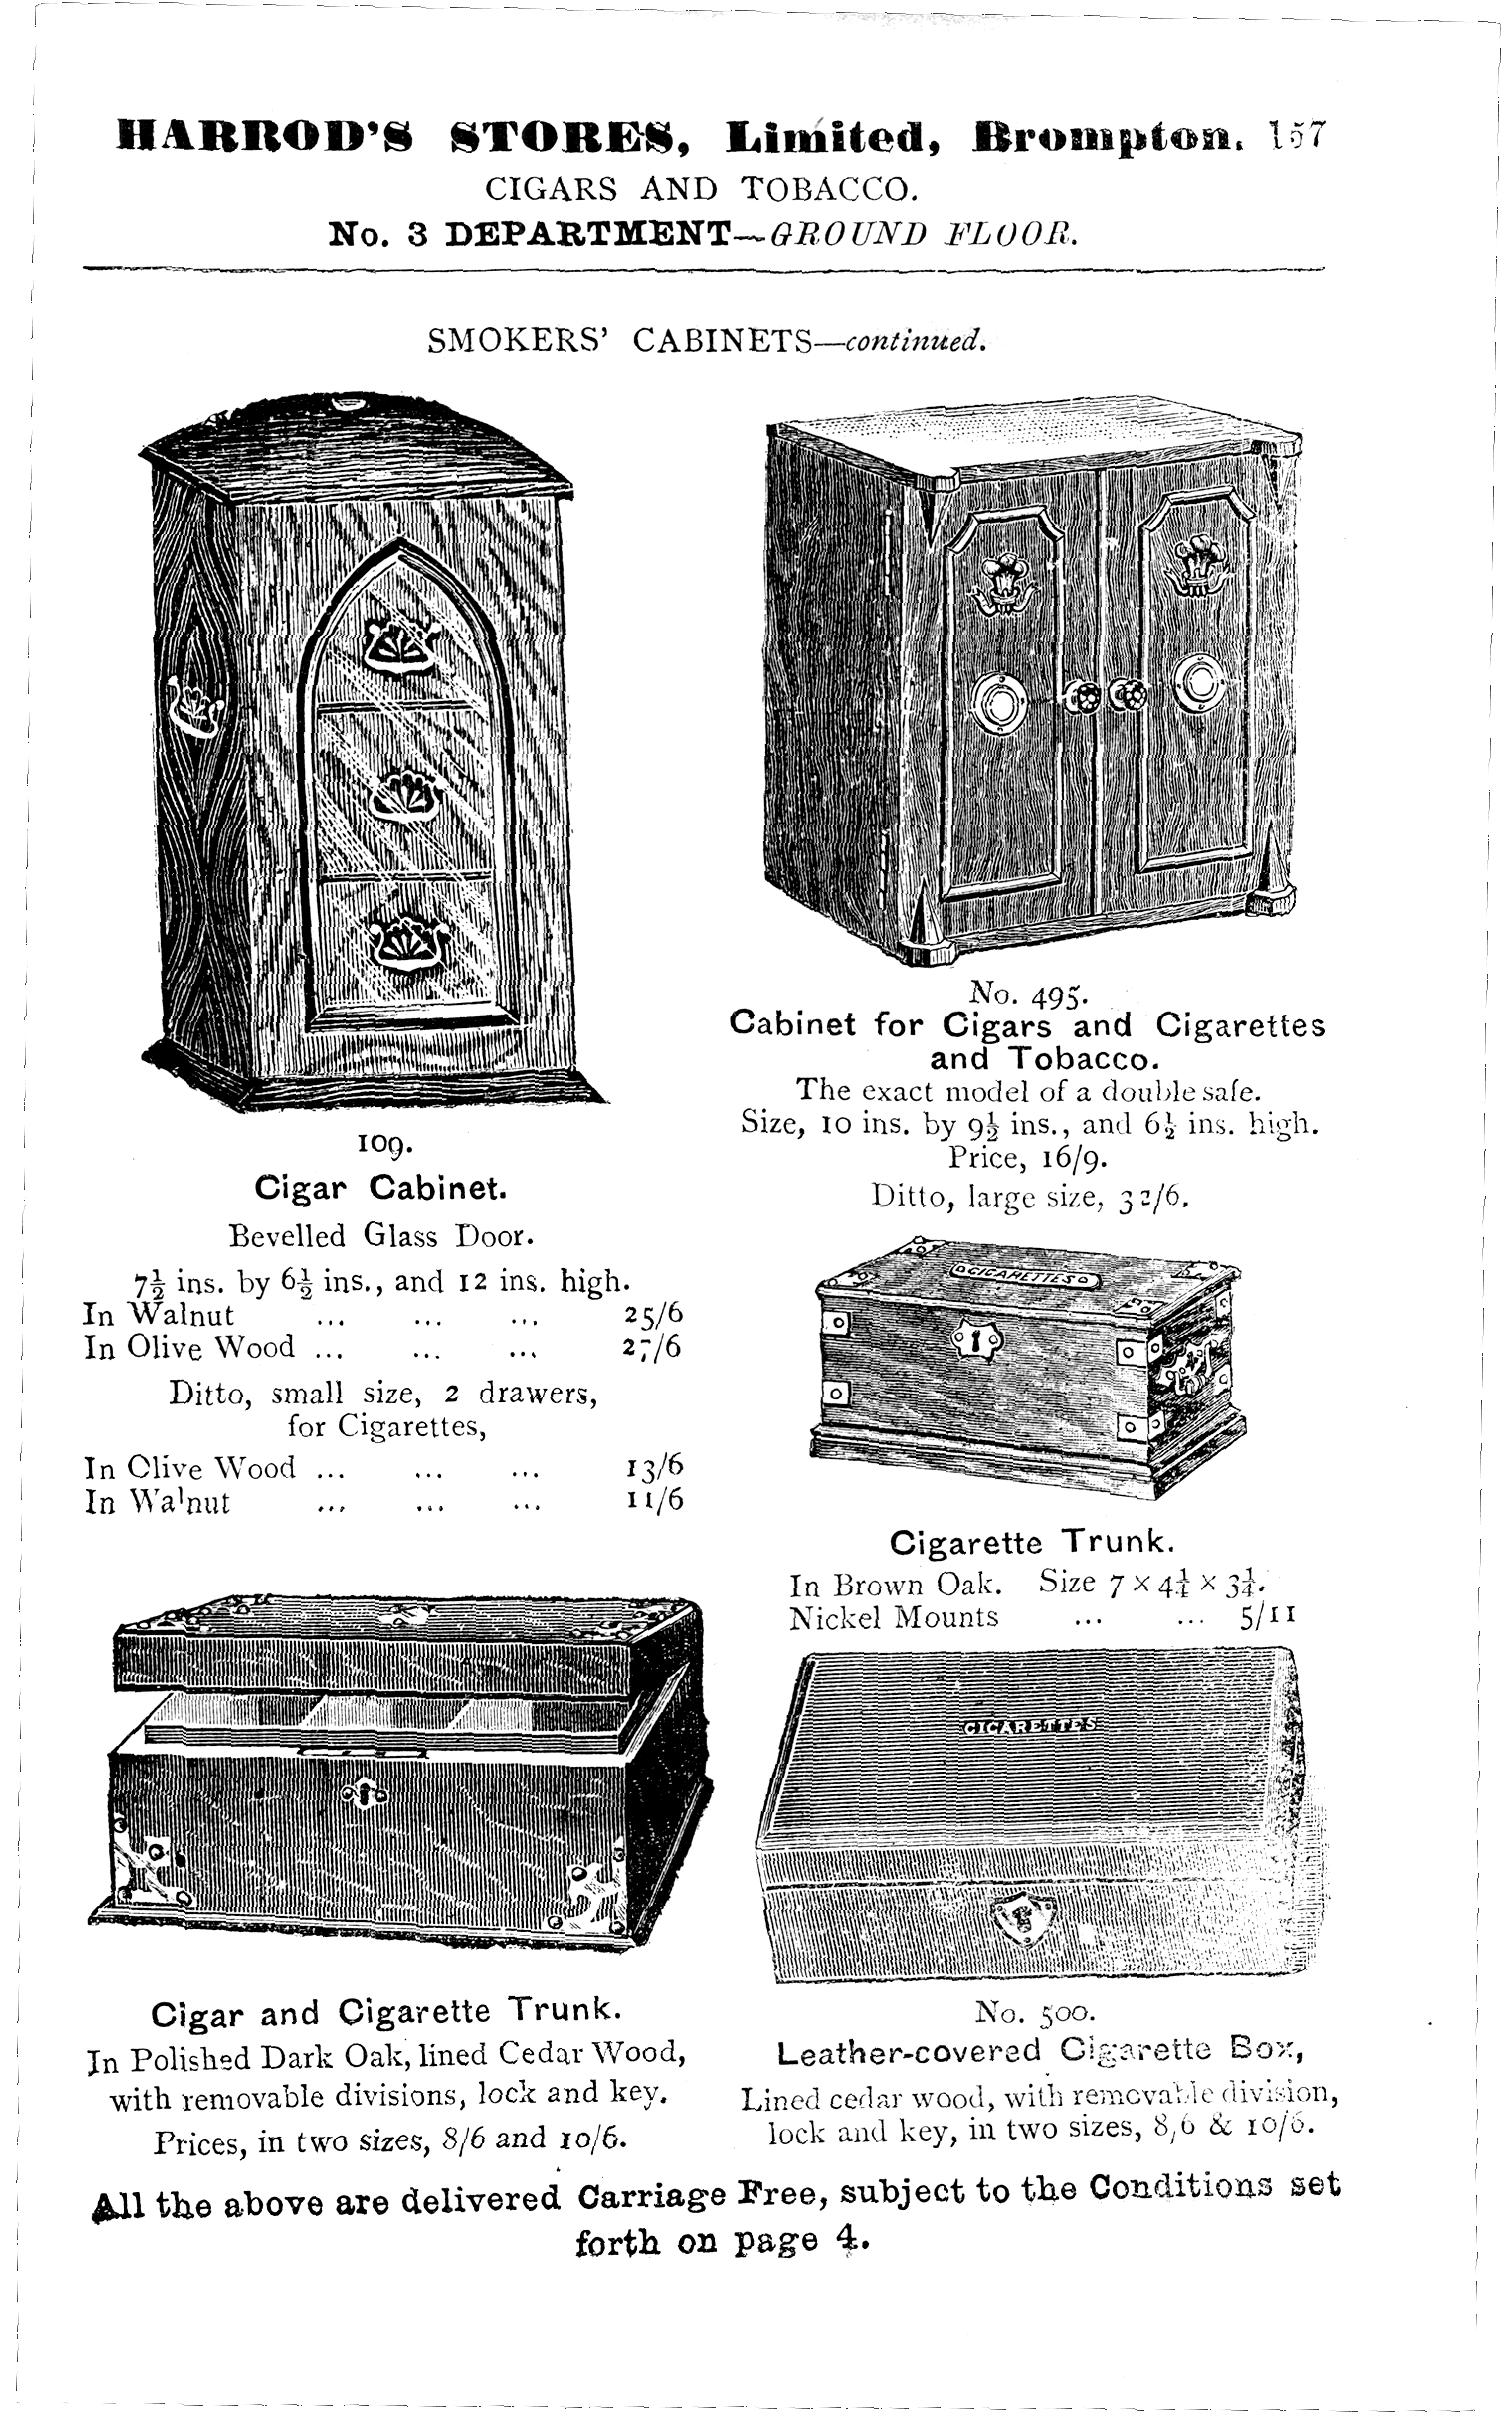 HARROD'S STORES, Limited, Brompton. 157
CIGARS AND TOBACCO.
No. 3 DEPARTMENT—GROUND FLOOR.
SMOKERS' CABINETS—continued.
109.
Cigar Cabinet.
Bevelled Glass Door.
7½ ins. by 6½ ins., and 12 ins. high.
In Walnut ... ... ... 25/6
In Olive Wood ... ... ... 27/6
Ditto, small size, 2 drawers,
for Cigarettes,
In Olive Wood ... ... ... 13/6
In Walnut ... ... ... 11/6
Cigar and Cigarette Trunk.
In Polished Dark Oak, lined Cedar Wood,
with removable divisions, lock and key.
Prices, in two sizes, 8/6 and 10/6.
No. 495.
Cabinet for Cigars and Cigarettes
and Tobacco.
The exact model of a double safe.
Size, 10 ins. by 9½ ins., and 6½ ins. high.
Price, 16/9.
Ditto, large size, 32/6.
CIGARETTES
Cigarette Trunk.
In Brown Oak. Size 7 × 4¼ × 3¼.
Nickel Mounts ... ... 5/11
CIGARETTES
No. 500.
Leather-covered Cigarette Box,
Lined cedar wood, with removable division,
lock and key, in two sizes, 8/6 & 10/6.
All the above are delivered Carriage Free, subject to the Conditions set
forth on page 4.